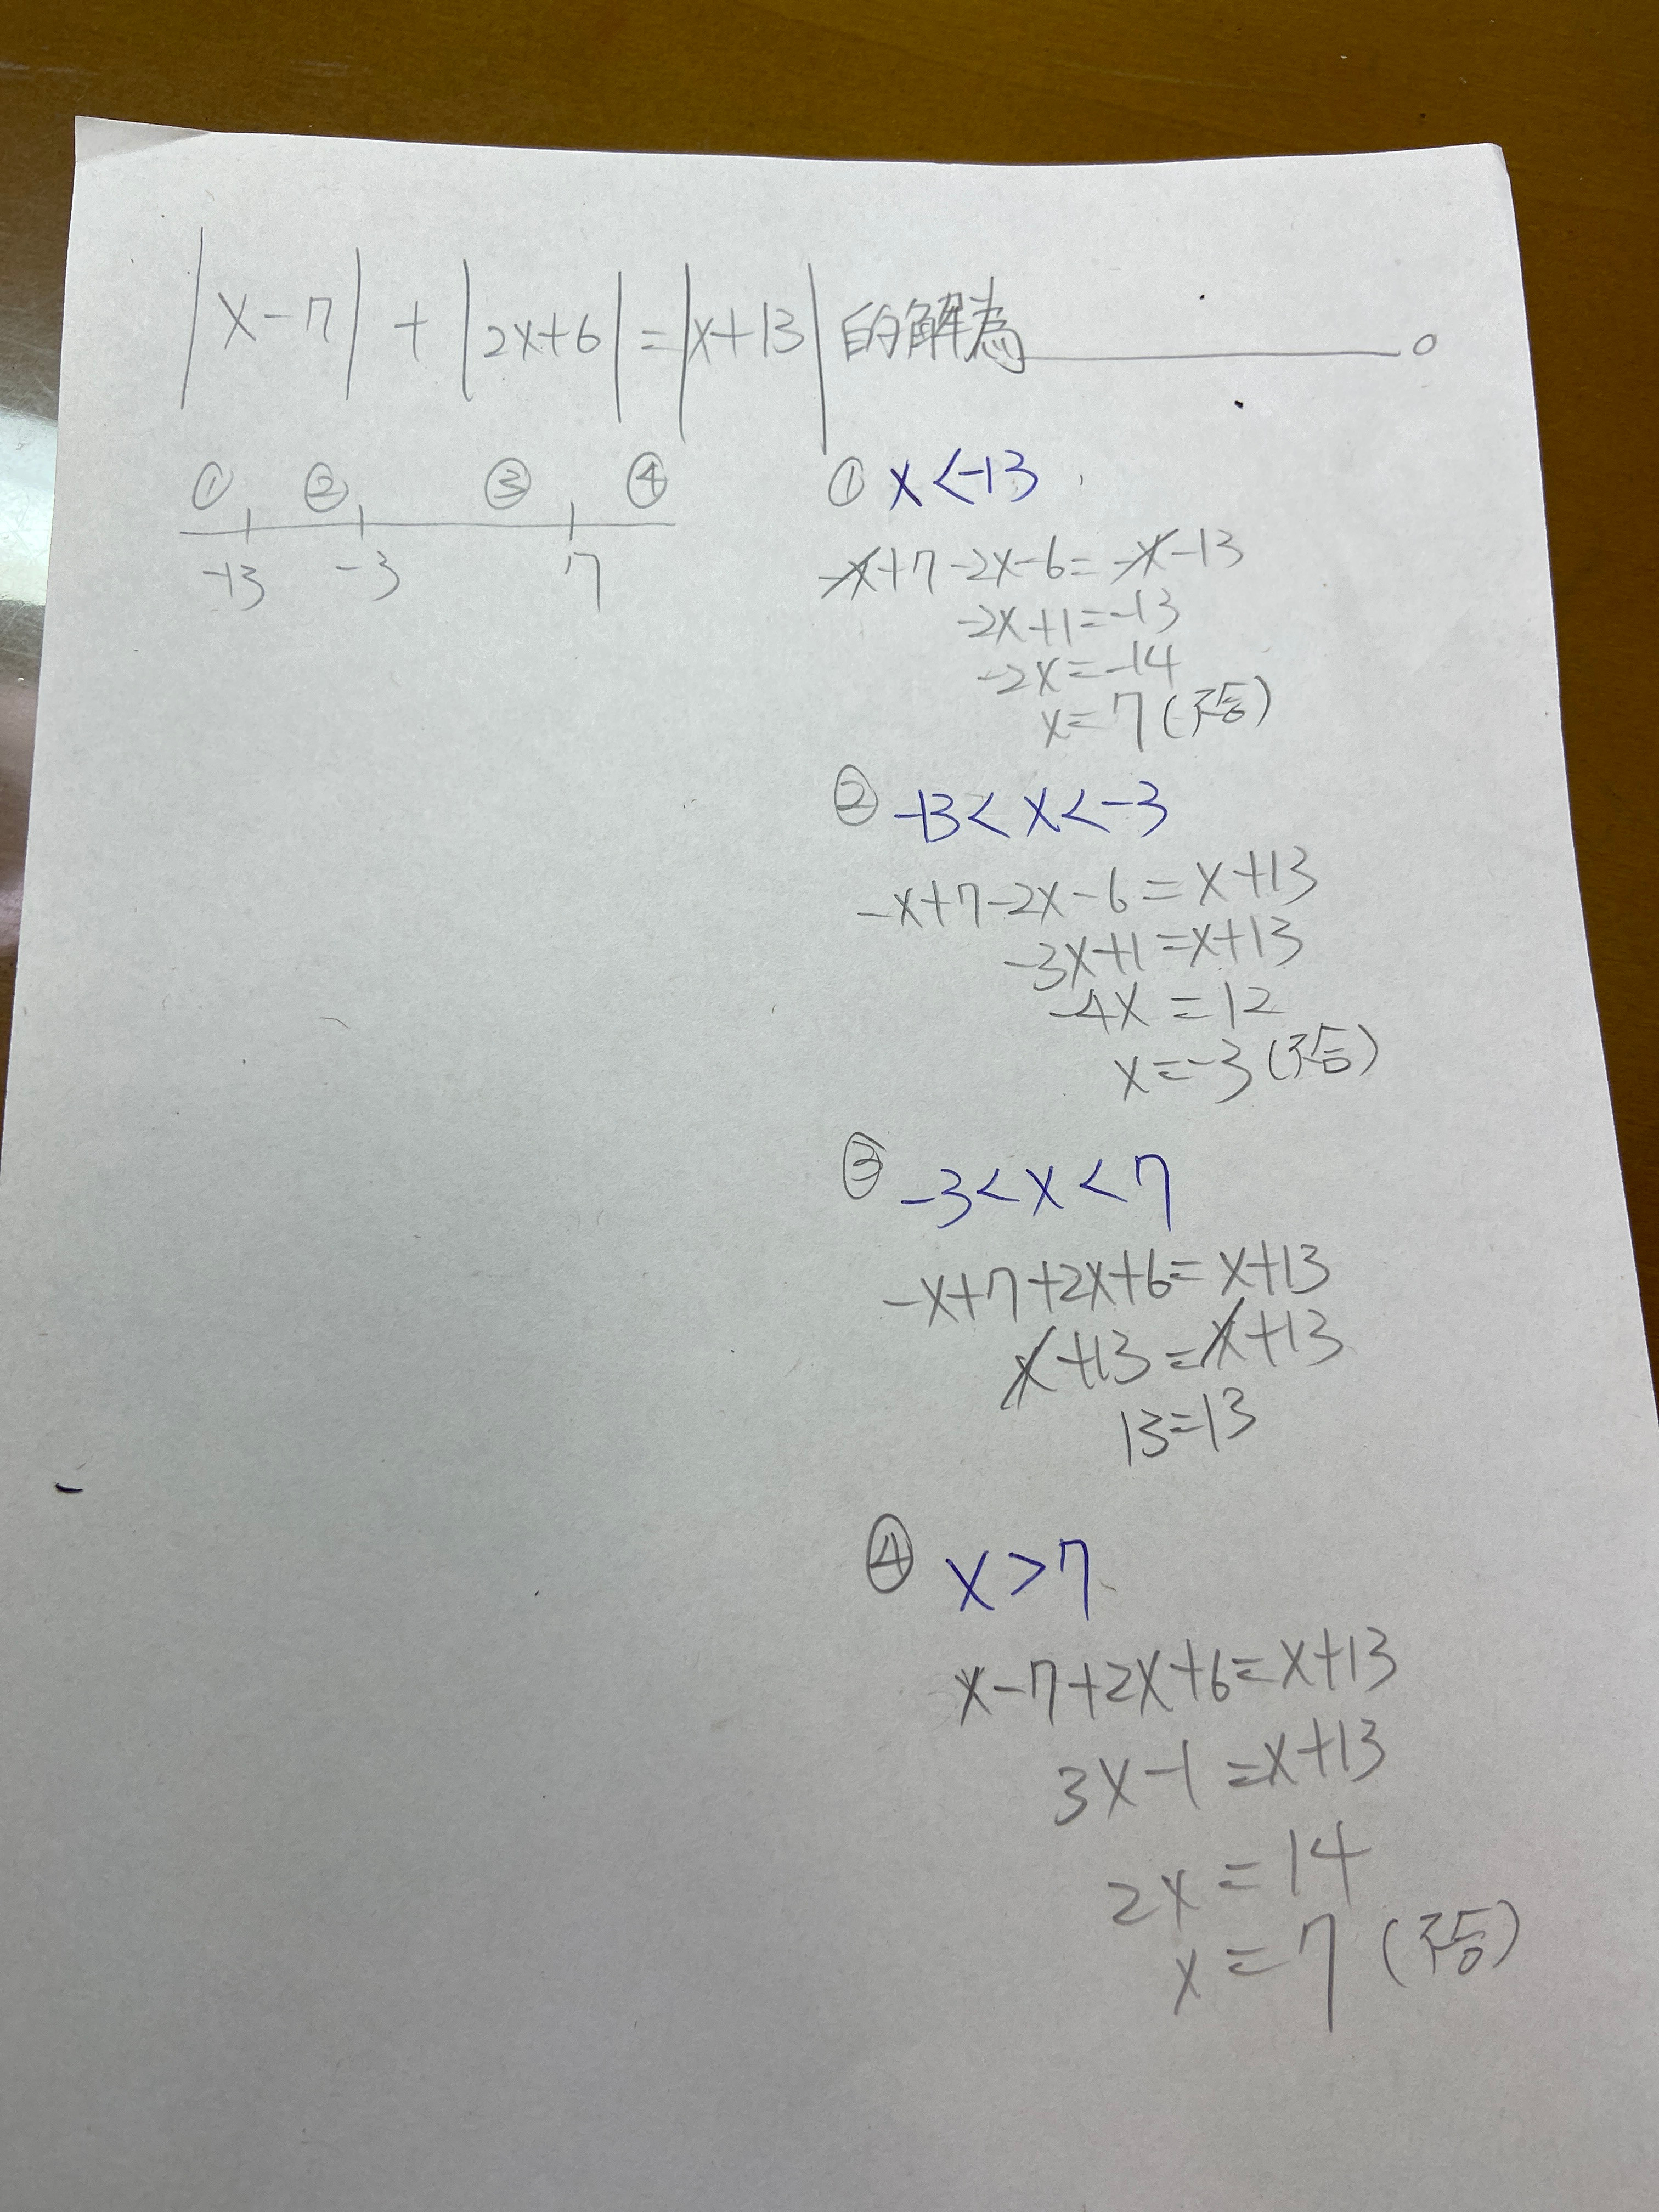 |x-7| + |2x+6| = |x+13| 的解為________。
① ② ③ ④
-13 -3 7
① x<-13
-x+7-2x-6=-x-13
-2x+1=-13
-2x=-14
x=7(不合)
② -13<x<-3
-x+7-2x-6=x+13
-3x+1=x+13
-4x=12
x=-3(不合)
③ -3<x<7
-x+7+2x+6=x+13
x+13=x+13
13=13
④ x>7
x-7+2x+6=x+13
3x-1=x+13
2x=14
x=7(不合)